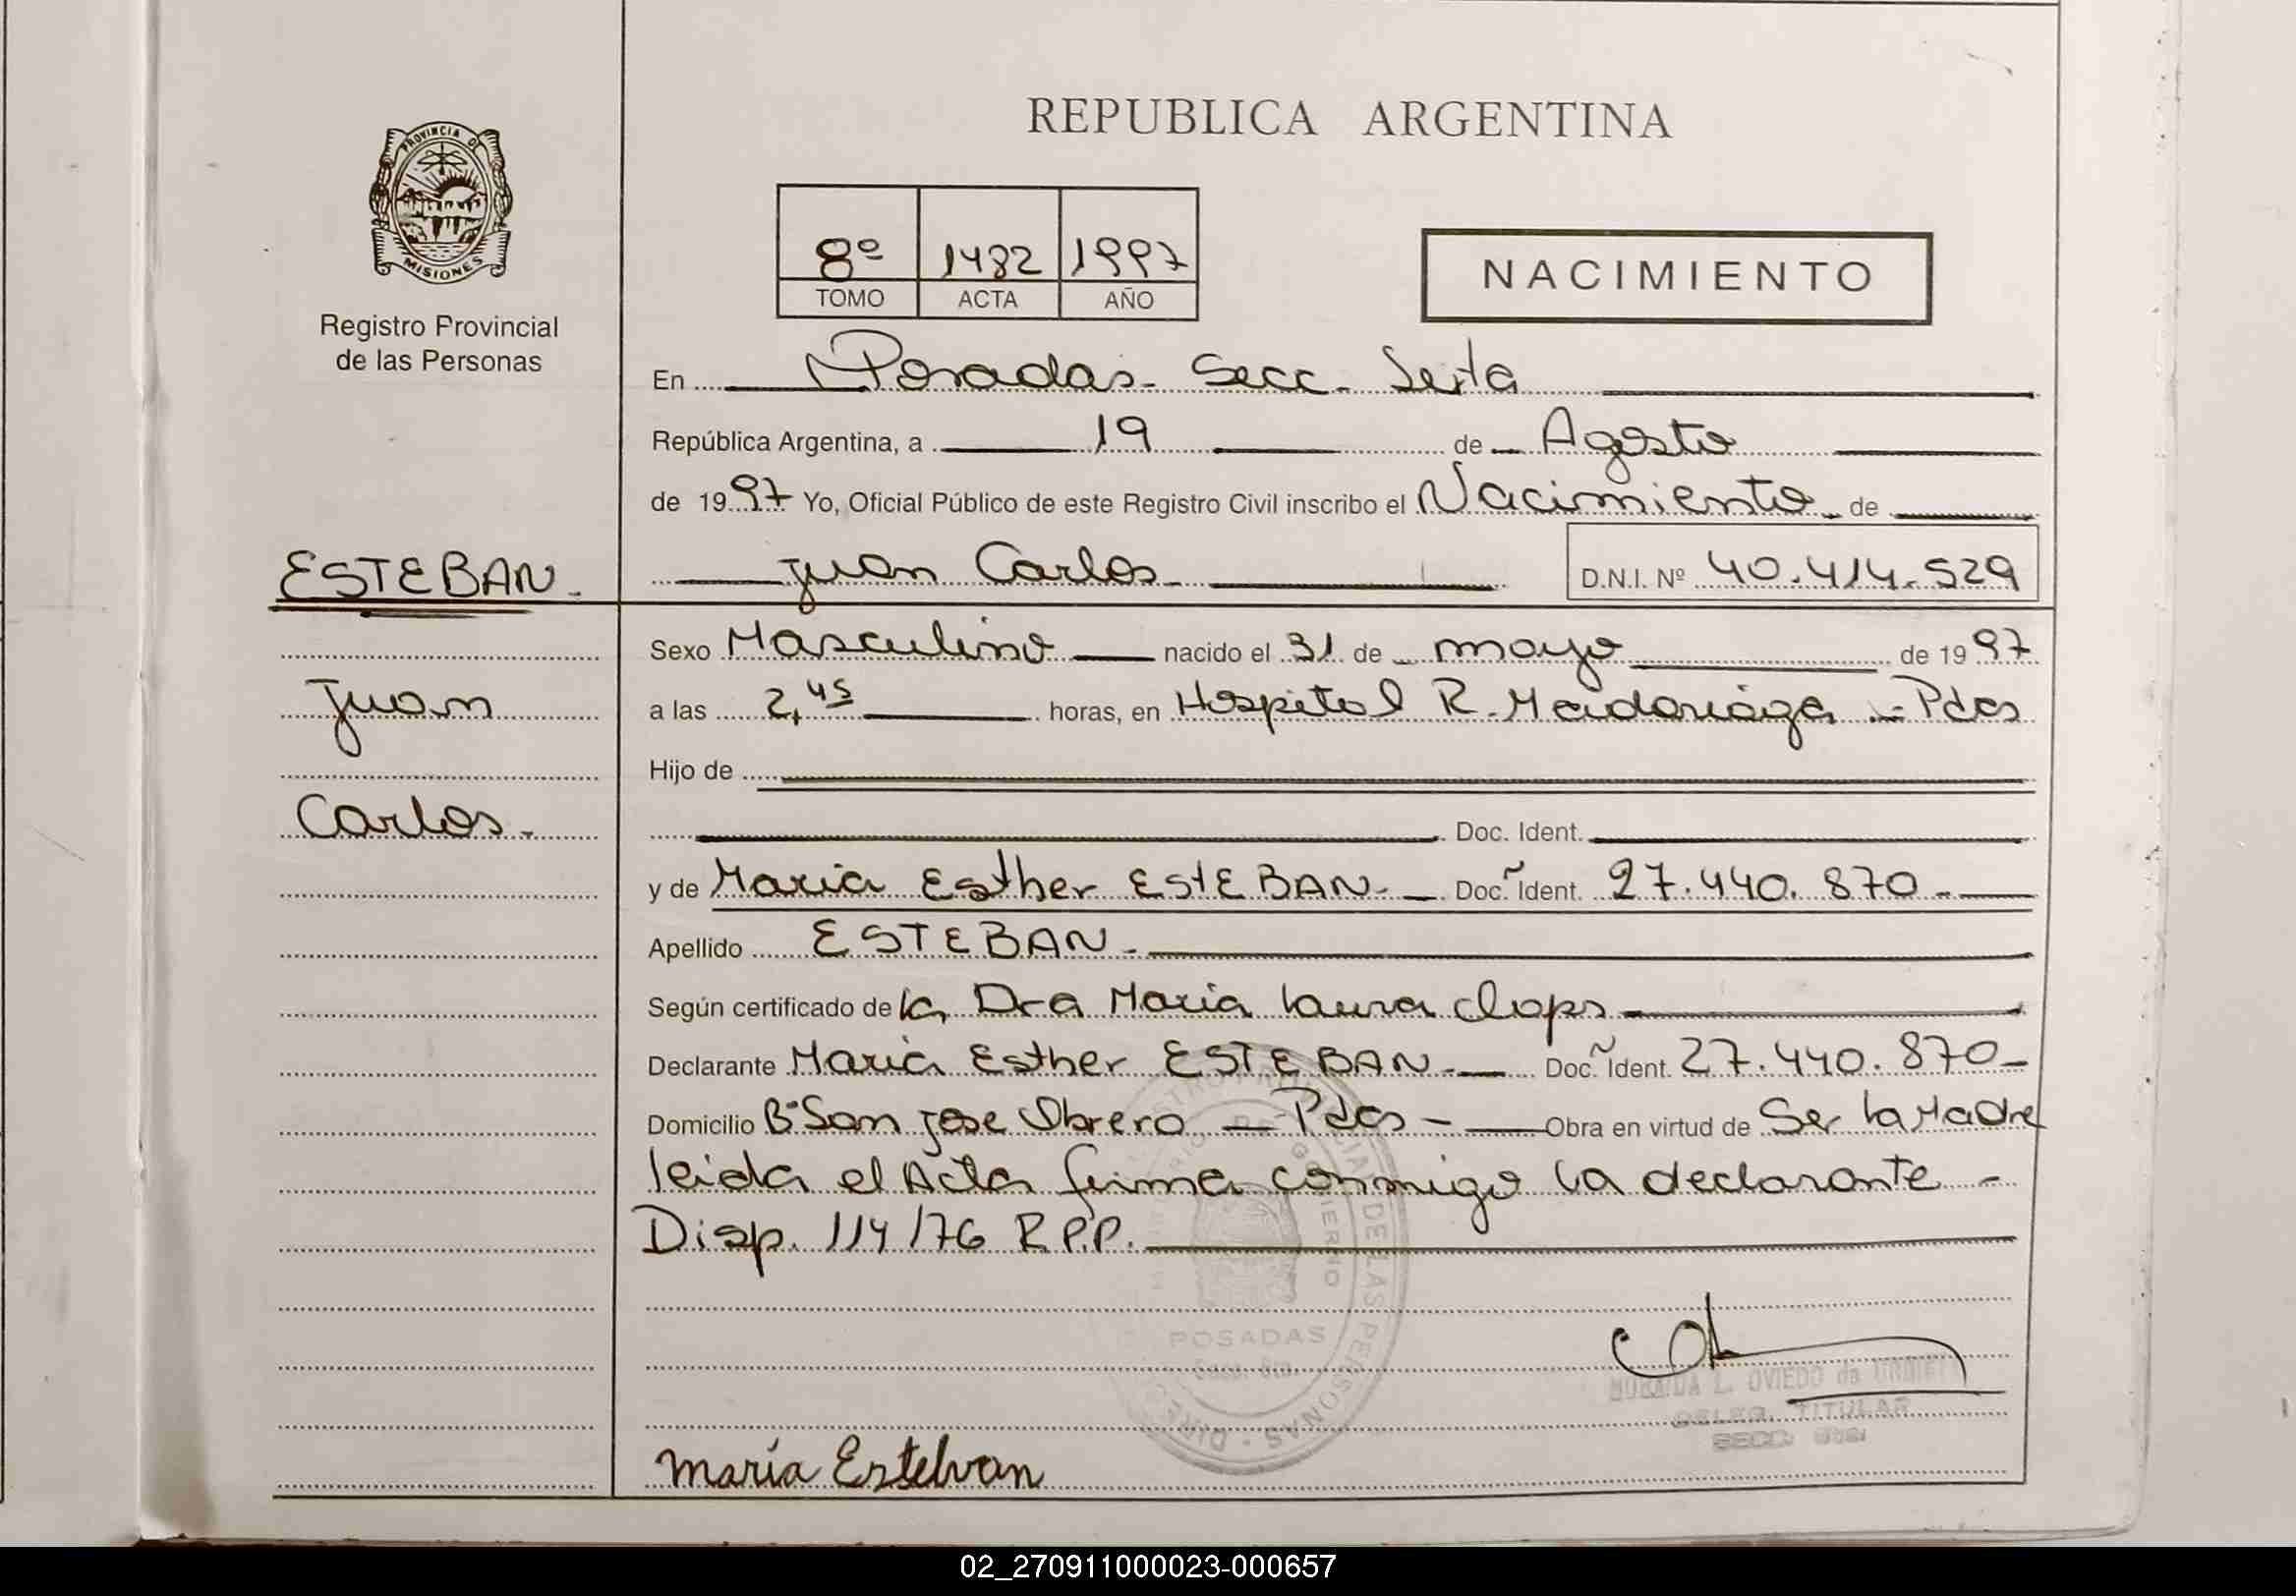 REPUBLICA ARGENTINA
PROVINCIA DE
MISIONES
Registro Provincial
de las Personas
8º 1482 1997
TOMO ACTA AÑO
NACIMIENTO
En Posadas - Secc - Sexta
República Argentina, a 19 de Agosto
de 1997 Yo, Oficial Público de este Registro Civil inscribo el Nacimiento de
ESTEBAN -
Juan Carlos - D.N.I. Nº 40.414.529
Sexo Masculino nacido el 31 de mayo de 1997
Juan
a las 2,45 horas, en Hospital R. Madariaga - Pdas
Hijo de
Carlos -
Doc. Ident.
y de Maria Esther ESTEBAN - Doc. Ident. 27.440.870 -
Apellido ESTEBAN -
Según certificado de la Dra Maria Laura
Declarante Maria Esther ESTEBAN - Doc. Ident. 27.440.870 -
Domicilio Bº San Jose Obrero - Pdas - Obra en virtud de Ser la Madre
leida el Acta firma conmigo la declarante -
Disp. 114/76 R.P.P.
GOBIERNO
DE LAS PERSONAS
POSADAS
L. OVIEDO de
TITULAR
SECC.
maría Estelvan
02_270911000023-000657